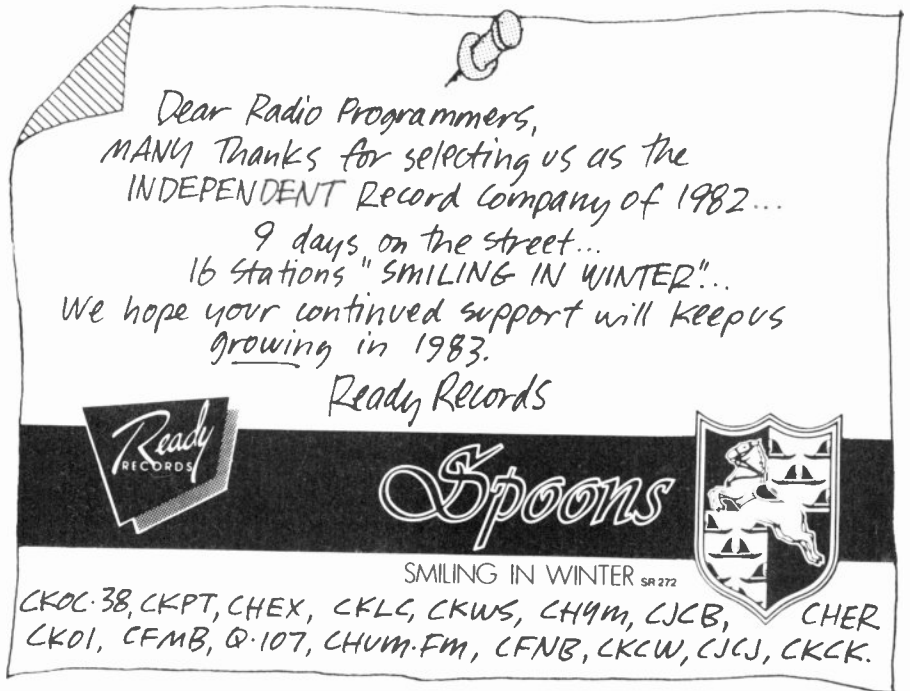 Dear Radio Programmers,
MANY Thanks for selecting us as the
INDEPENDENT Record Company of 1982...
9 days on the street...
16 Stations "SMILING IN WINTER"...
We hope your continued support will keep us
growing in 1983.
Ready Records
Ready
RECORDS
Spoons
SMILING IN WINTER SR 272
CKOC·38, CKPT, CHEX, CKLC, CKWS, CHYM, CJCB, CHER
CKOI, CFMB, Q·107, CHUM·FM, CFNB, CKCW, CJCJ, CKCK.